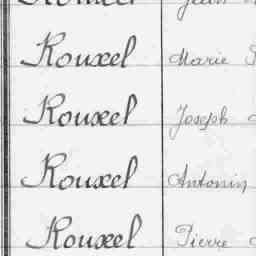 Rouxel Jean
Rouxel Marie
Rouxel Joseph
Rouxel Antonin
Rouxel Pierre